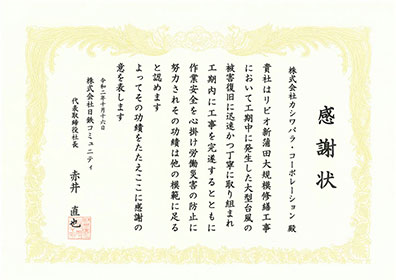 感謝状
株式会社カシワバラ・コーポレーション 殿
貴社はリビオ新蒲田大規模修繕工事
において工期中に発生した大型台風の
被害復旧に迅速かつ丁寧に取り組まれ
工期内に工事を完遂するとともに
作業安全を心掛け労働災害の防止に
努力されその功績は他の模範に足る
と認めます
よってその功績をたたえここに感謝の
意を表します
令和二年十月十六日
株式会社日鉄コミュニティ
代表取締役社長 赤井 直也